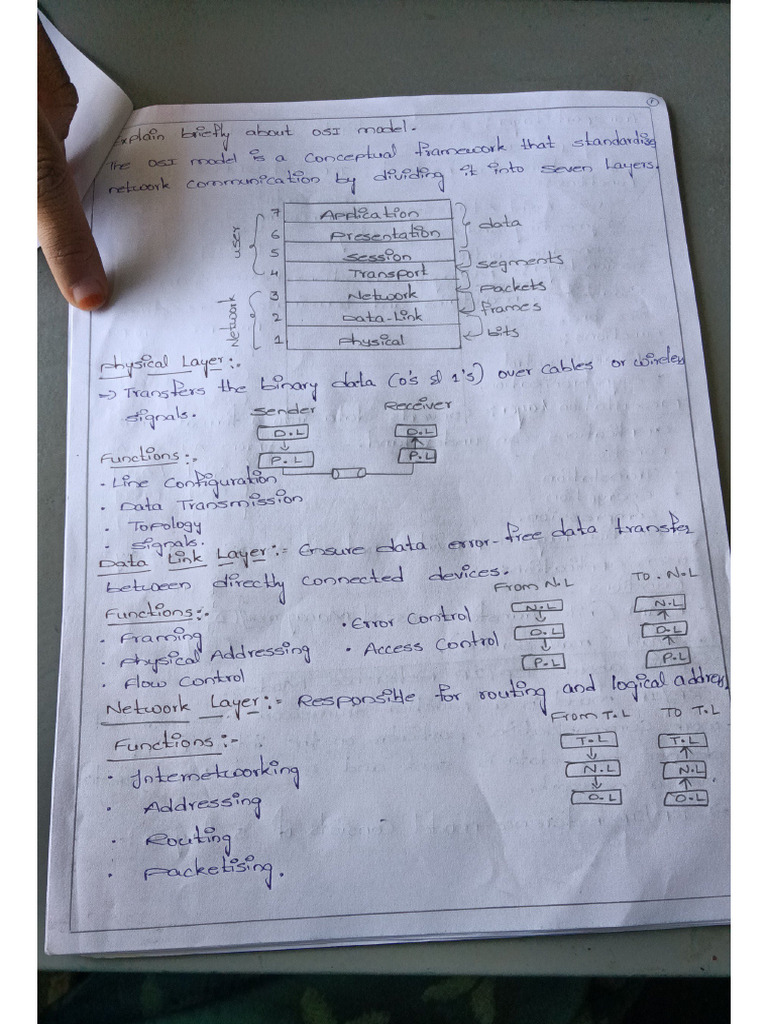 Explain briefly about OSI model.
The OSI model is a conceptual framework that standardise
network communication by dividing it into seven Layers.
7 Application
6 Presentation
data
5 Session
user
4 Transport
segments
3 Network
packets
2 Data-Link
frames
Network
1 Physical
bits
Physical Layer:-
→ Transfers the binary data (0's & 1's) over cables or wireless
signals.
Sender
Receiver
D.L
D.L
P.L
P.L
Functions:-
· Line Configuration
· Data Transmission
· Topology
· Signals.
Data Link Layer:- Ensure data error-free data transfer
between directly connected devices.
From N.L
To.N.L
Functions:-
N.L
N.L
· Framing
· Error Control
D.L
D.L
· Physical Addressing
· Access Control
P.L
P.L
· Flow Control
Network Layer:- Responsible for routing and logical address
From T.L
To T.L
Functions:-
T.L
T.L
· Internetworking
N.L
N.L
· Addressing
D.L
D.L
· Routing
· Packetising.